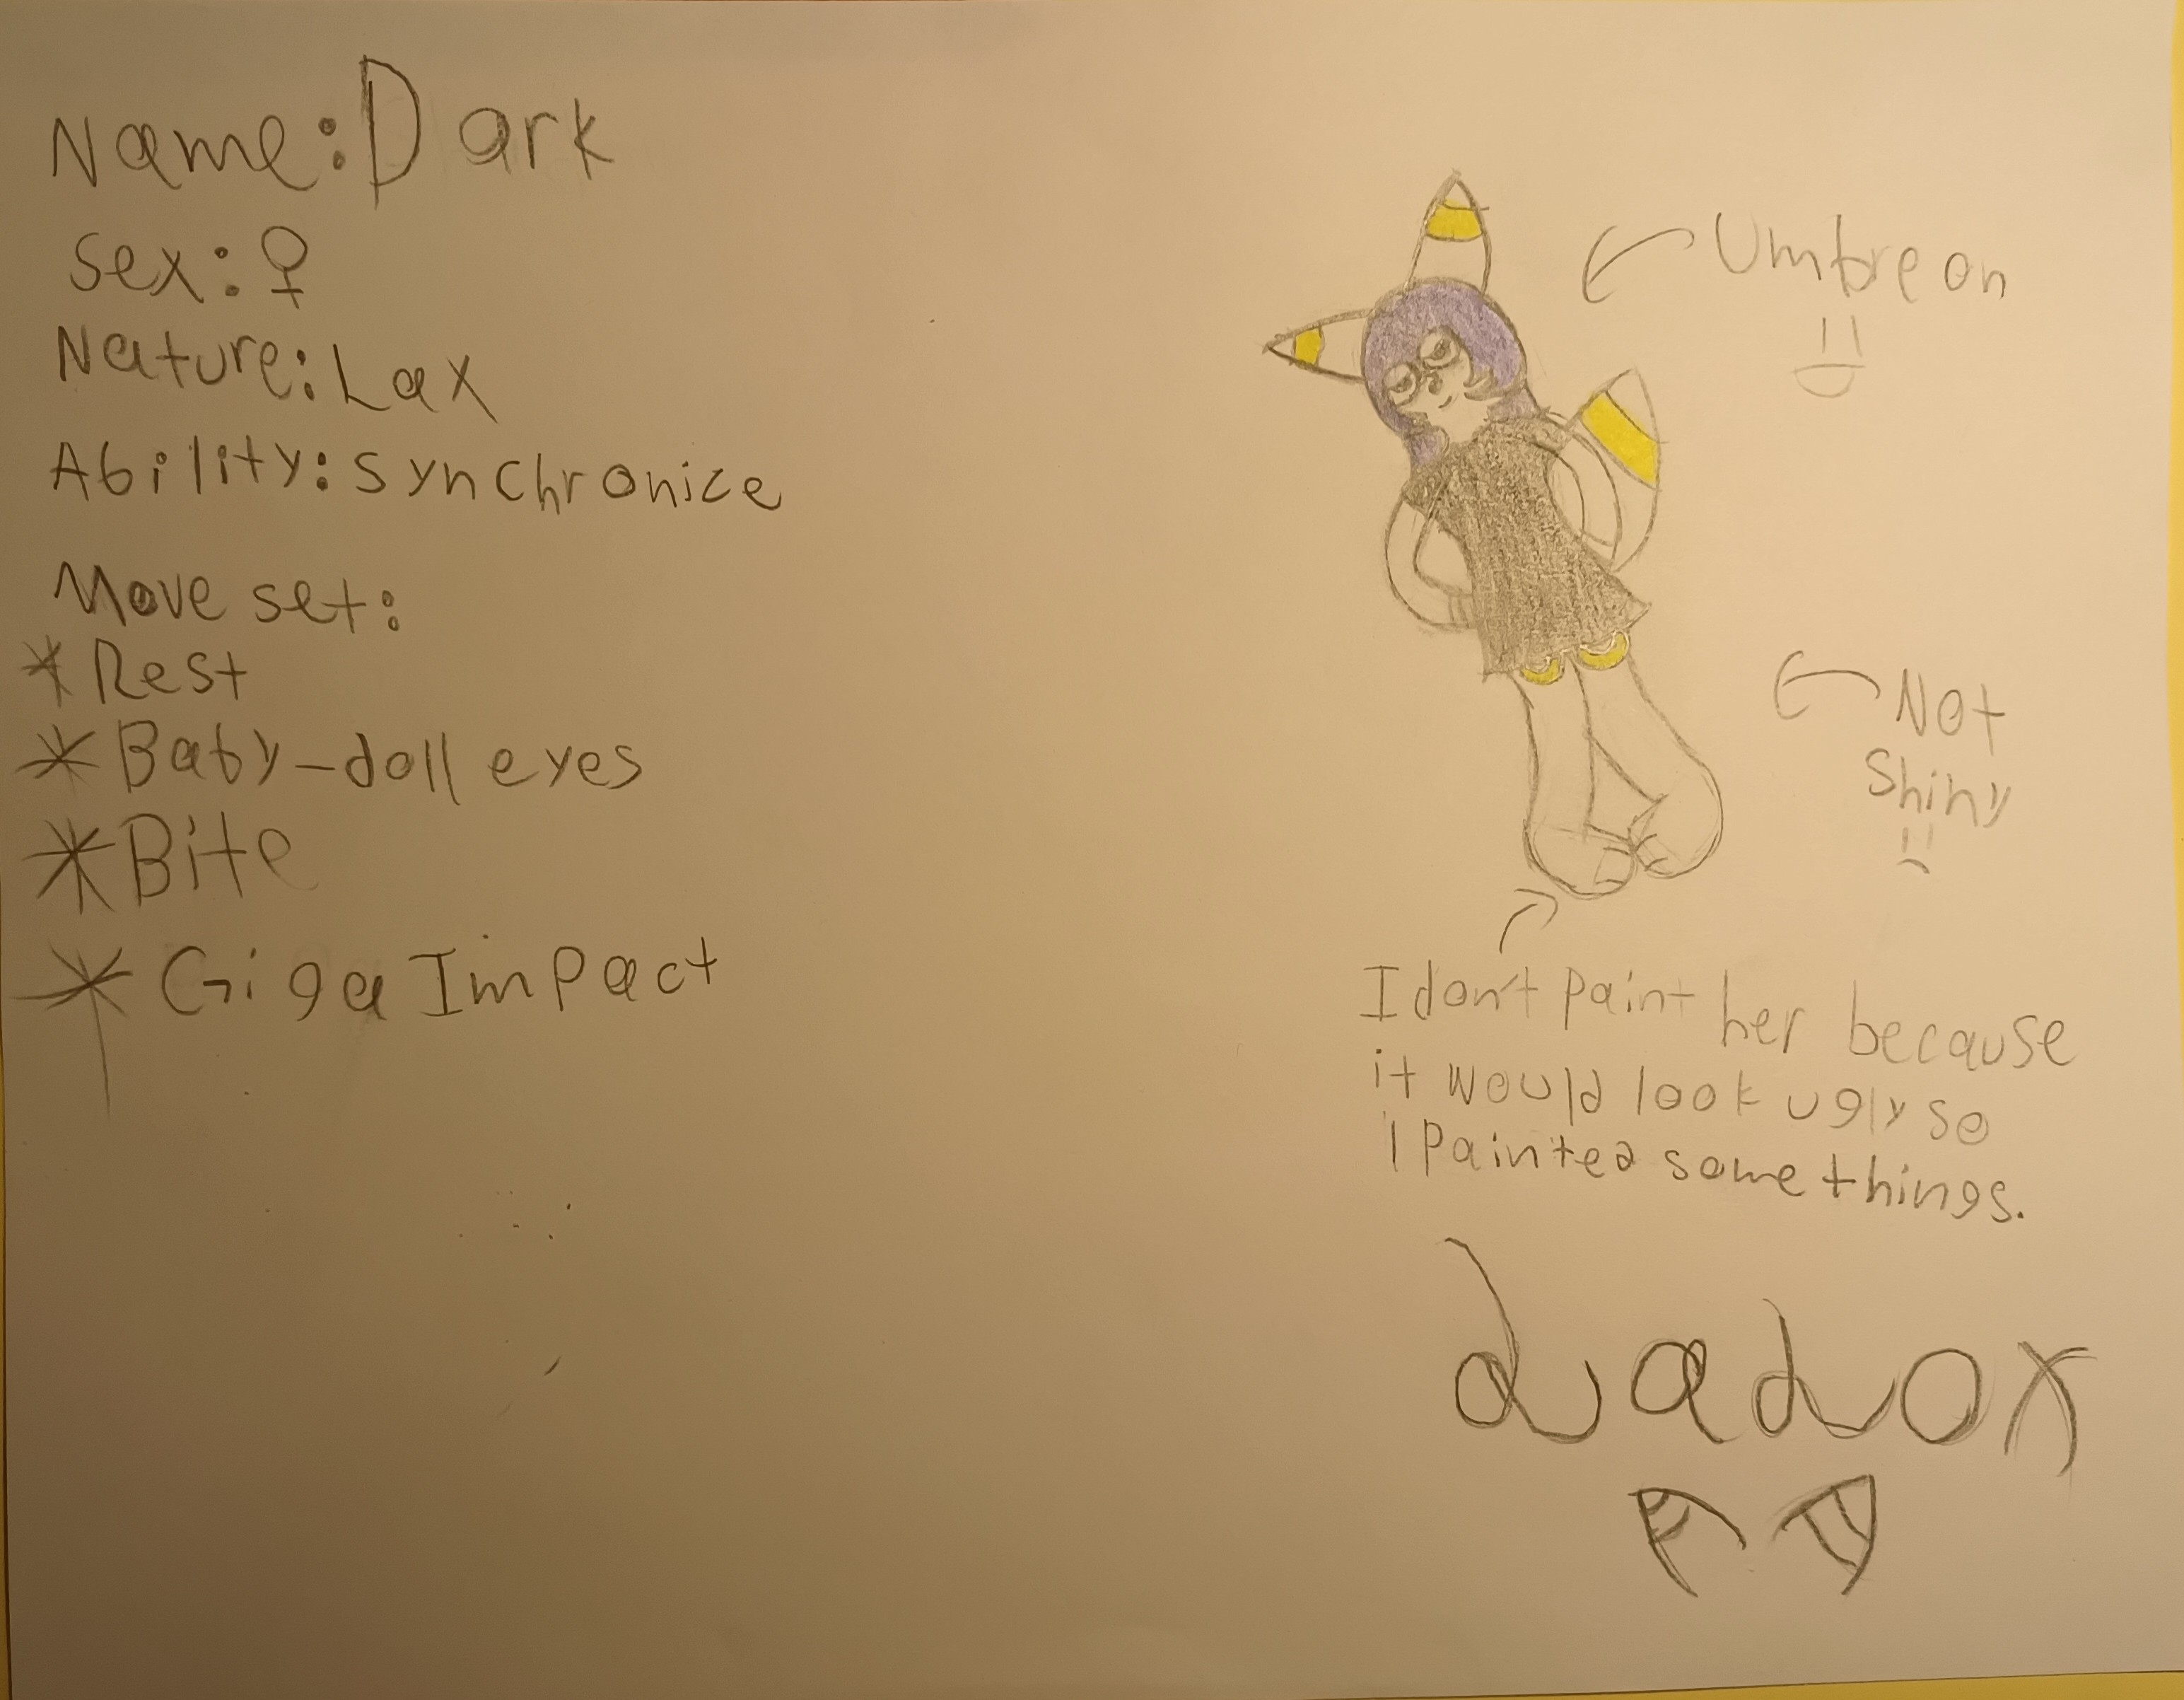 Name: Dark
Sex: ♀
Nature: Lax
Ability: synchronice
Move set:
* Rest
* Baby-doll eyes
* Bite
* Giga Impact
Umbreon
Not
Shiny
I don't paint her because
it would look ugly so
I Painted some things.